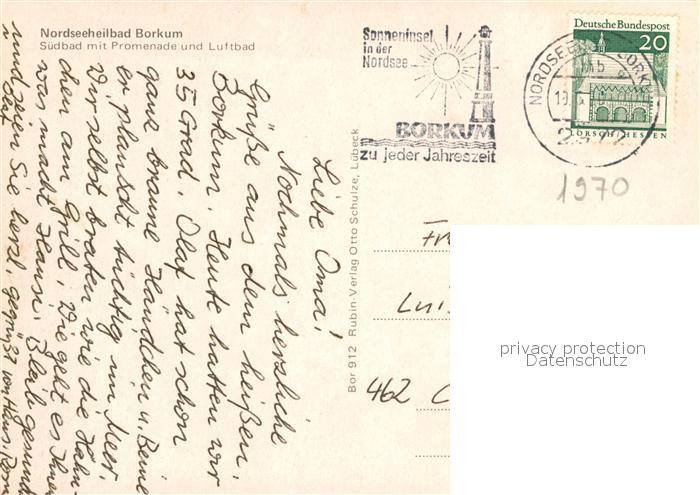 Nordseeheilbad Borkum
Südbad mit Promenade und Luftbad
Liebe Oma!
Nochmals herzliche
Grüße aus dem heißen
Borkum. Heute hatten wir
35 Grad. Olaf hat schon
ganz braune Händchen u. Beine
er planscht tüchtig im Meer.
Wir selbst braten wie die Hähn-
chen am Grill. Wie geht es Ihnen
was macht Hansi. Bleib gesund
und seien Sie herzl. gegrüßt von
Bor 912 Rubin-Verlag Otto Schulze, Lübeck
Sonneninsel
in der
Nordsee
BORKUM
zu jeder Jahreszeit
NORDSEE
Deutsche Bundespost
20
LORSCH/HESSEN
1970
462
privacy protection
Datenschutz